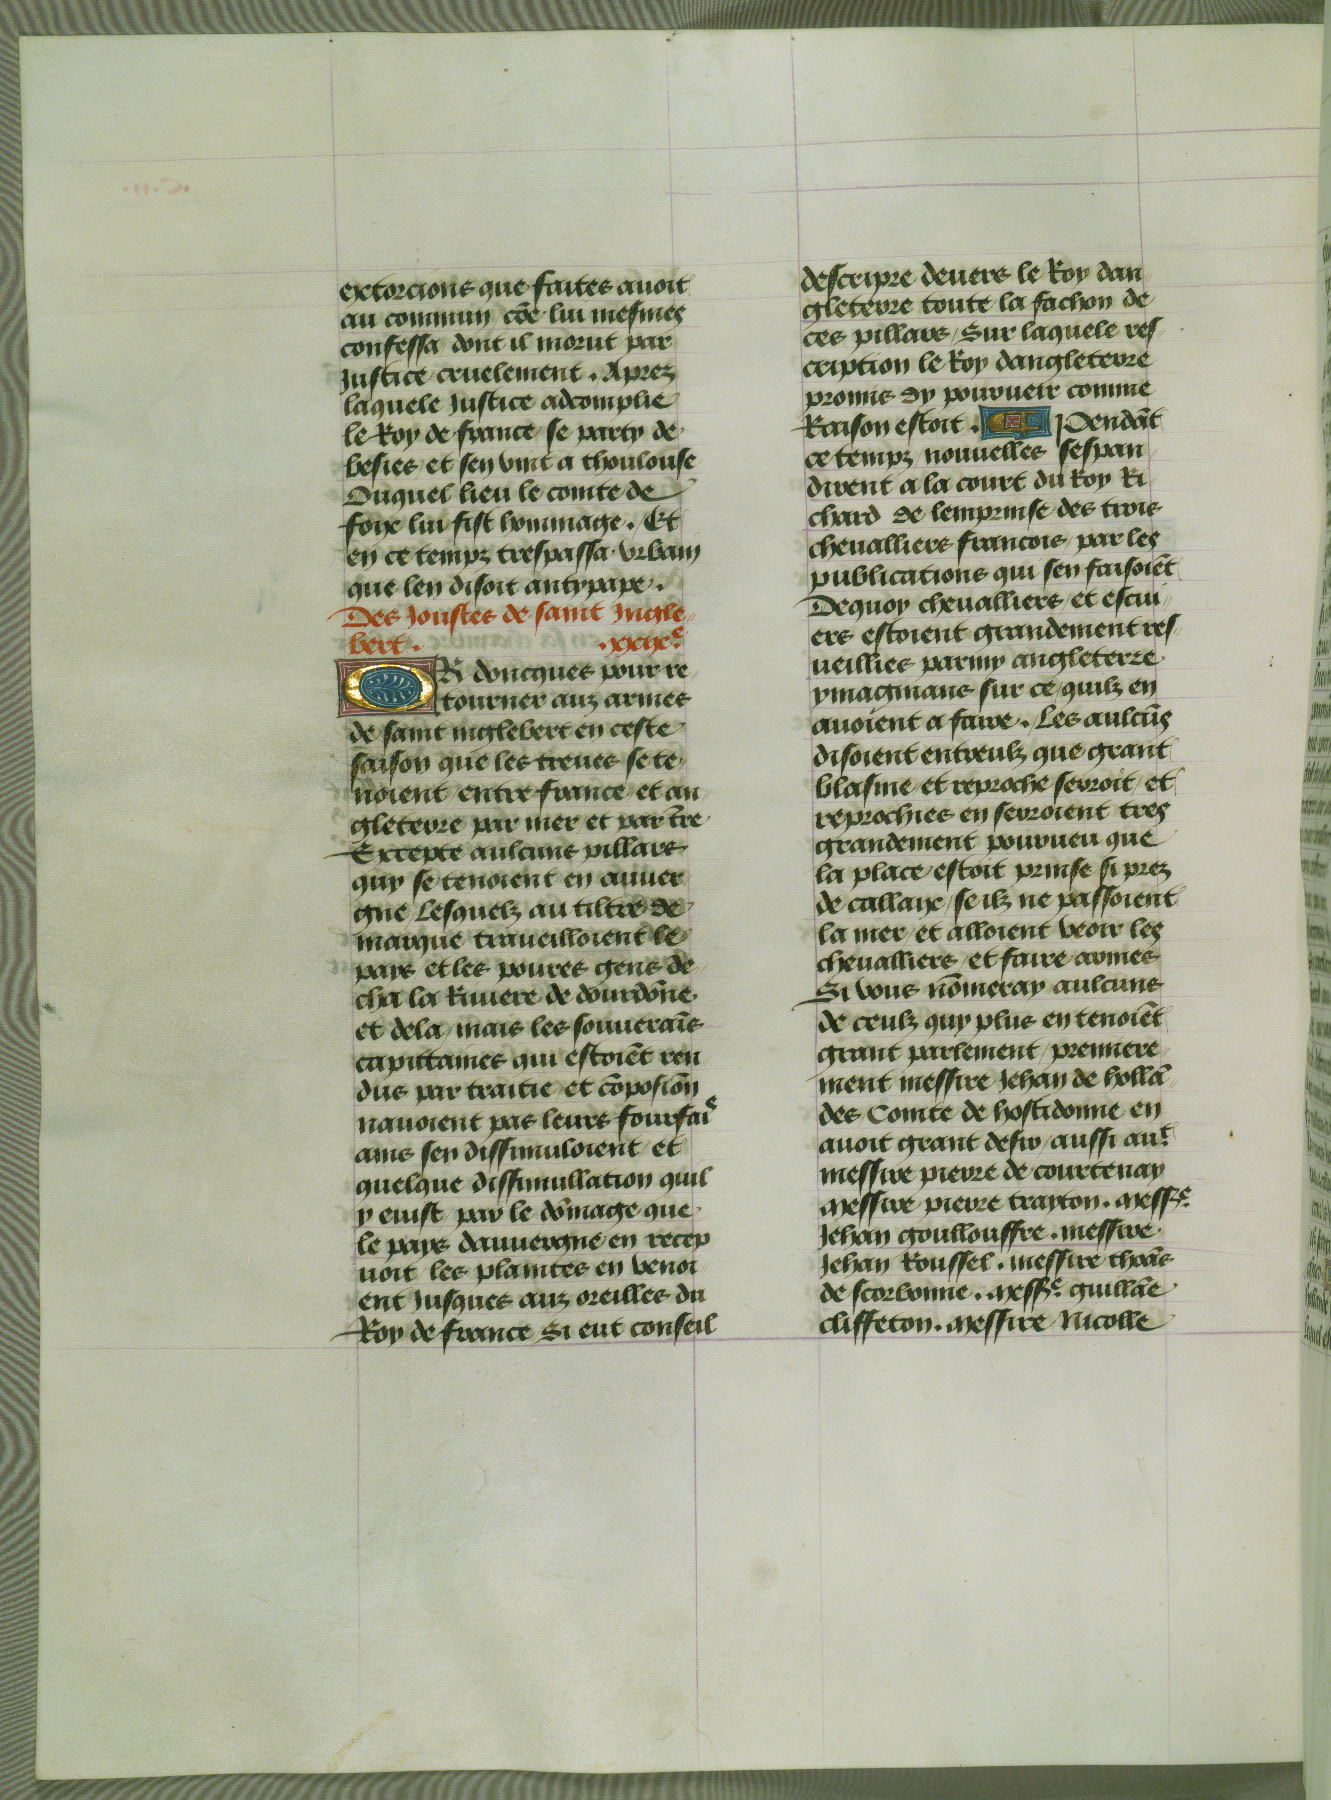 extorcions que faites auoit
au commun cōe lui mesmes
confessa dont il morut par
Justice cruelement . Aprez
laquele Justice adcomplie
le Roy de france se party de
besies et sen vint a thoulouse
Ouquel lieu le comte de
foix lui fist hommage . Et
en ce tempz trespassa vrbain
que len disoit antypape .
Des Joustes de saint Jngle-
bert . .xxixe.
OR doncques pour re
tourner aux armes
de saint inglebert en ceste
saison que les treues se te
noient entre france et an
gleterre par mer et par tr̄e
Excepte aulcuns pillars
quy se tenoient en auuer
gne Lesquelz au tiltre de
marque traueilloient le
pays et les poures gens de
cha la Riuiere de dourdōne
et dela / mais les souueraīs
capittaines qui estoiēt ren
dus par traitie et cōposion̄
nauoient pas leurs fourfaie
ains sen dissimuloient et
quelque dissimullation quil
y euist par le dōmage que
le pays dauuergne en recep
uoit les plaintes en venoi
ent Jusques aux oreilles du
Roy de france Si eut conseil
descripre deuers le Roy dan
gleterre toute la fachon de
ces pillars / Sur laquele res
cription le Roy dangleterre
promis dy pourueir comme
Raison estoit . Pendāt
ce tempz nouuelles sespan
dirent a la court du Roy Ri
chard de lemprinse des trois
cheualliers francois par les
publications qui sen faisoiēt
Dequoy cheualliers et escui-
ers estoient grandement res
ueillies parmy angleterre
ymaginans sur ce quilz en
auoient a faire . Les aulcūs
disoient entreulz que grant
blasme et reproche seroit et
reprochies en seroient tres
grandement pourueu que
la place estoit prinse si prez
de callaix / se ilz ne passoient
la mer et alloient veoir les
cheualliers et faire armes
Si vous nōmeray aulcuns
de ceulz quy plus en tenoiēt
grant parlement / premiere-
ment messire Jehan de hollā-
des Comte de hostidonne en
auoit grant desir / aussi aut
messire pierre de courtenay
messire pierre trayton . messre.
Jehan goullouffre . messire
Jehan Roussel . messire thoās
de scorbonne . messre. guillāe
cliffeton . messire Nicolle